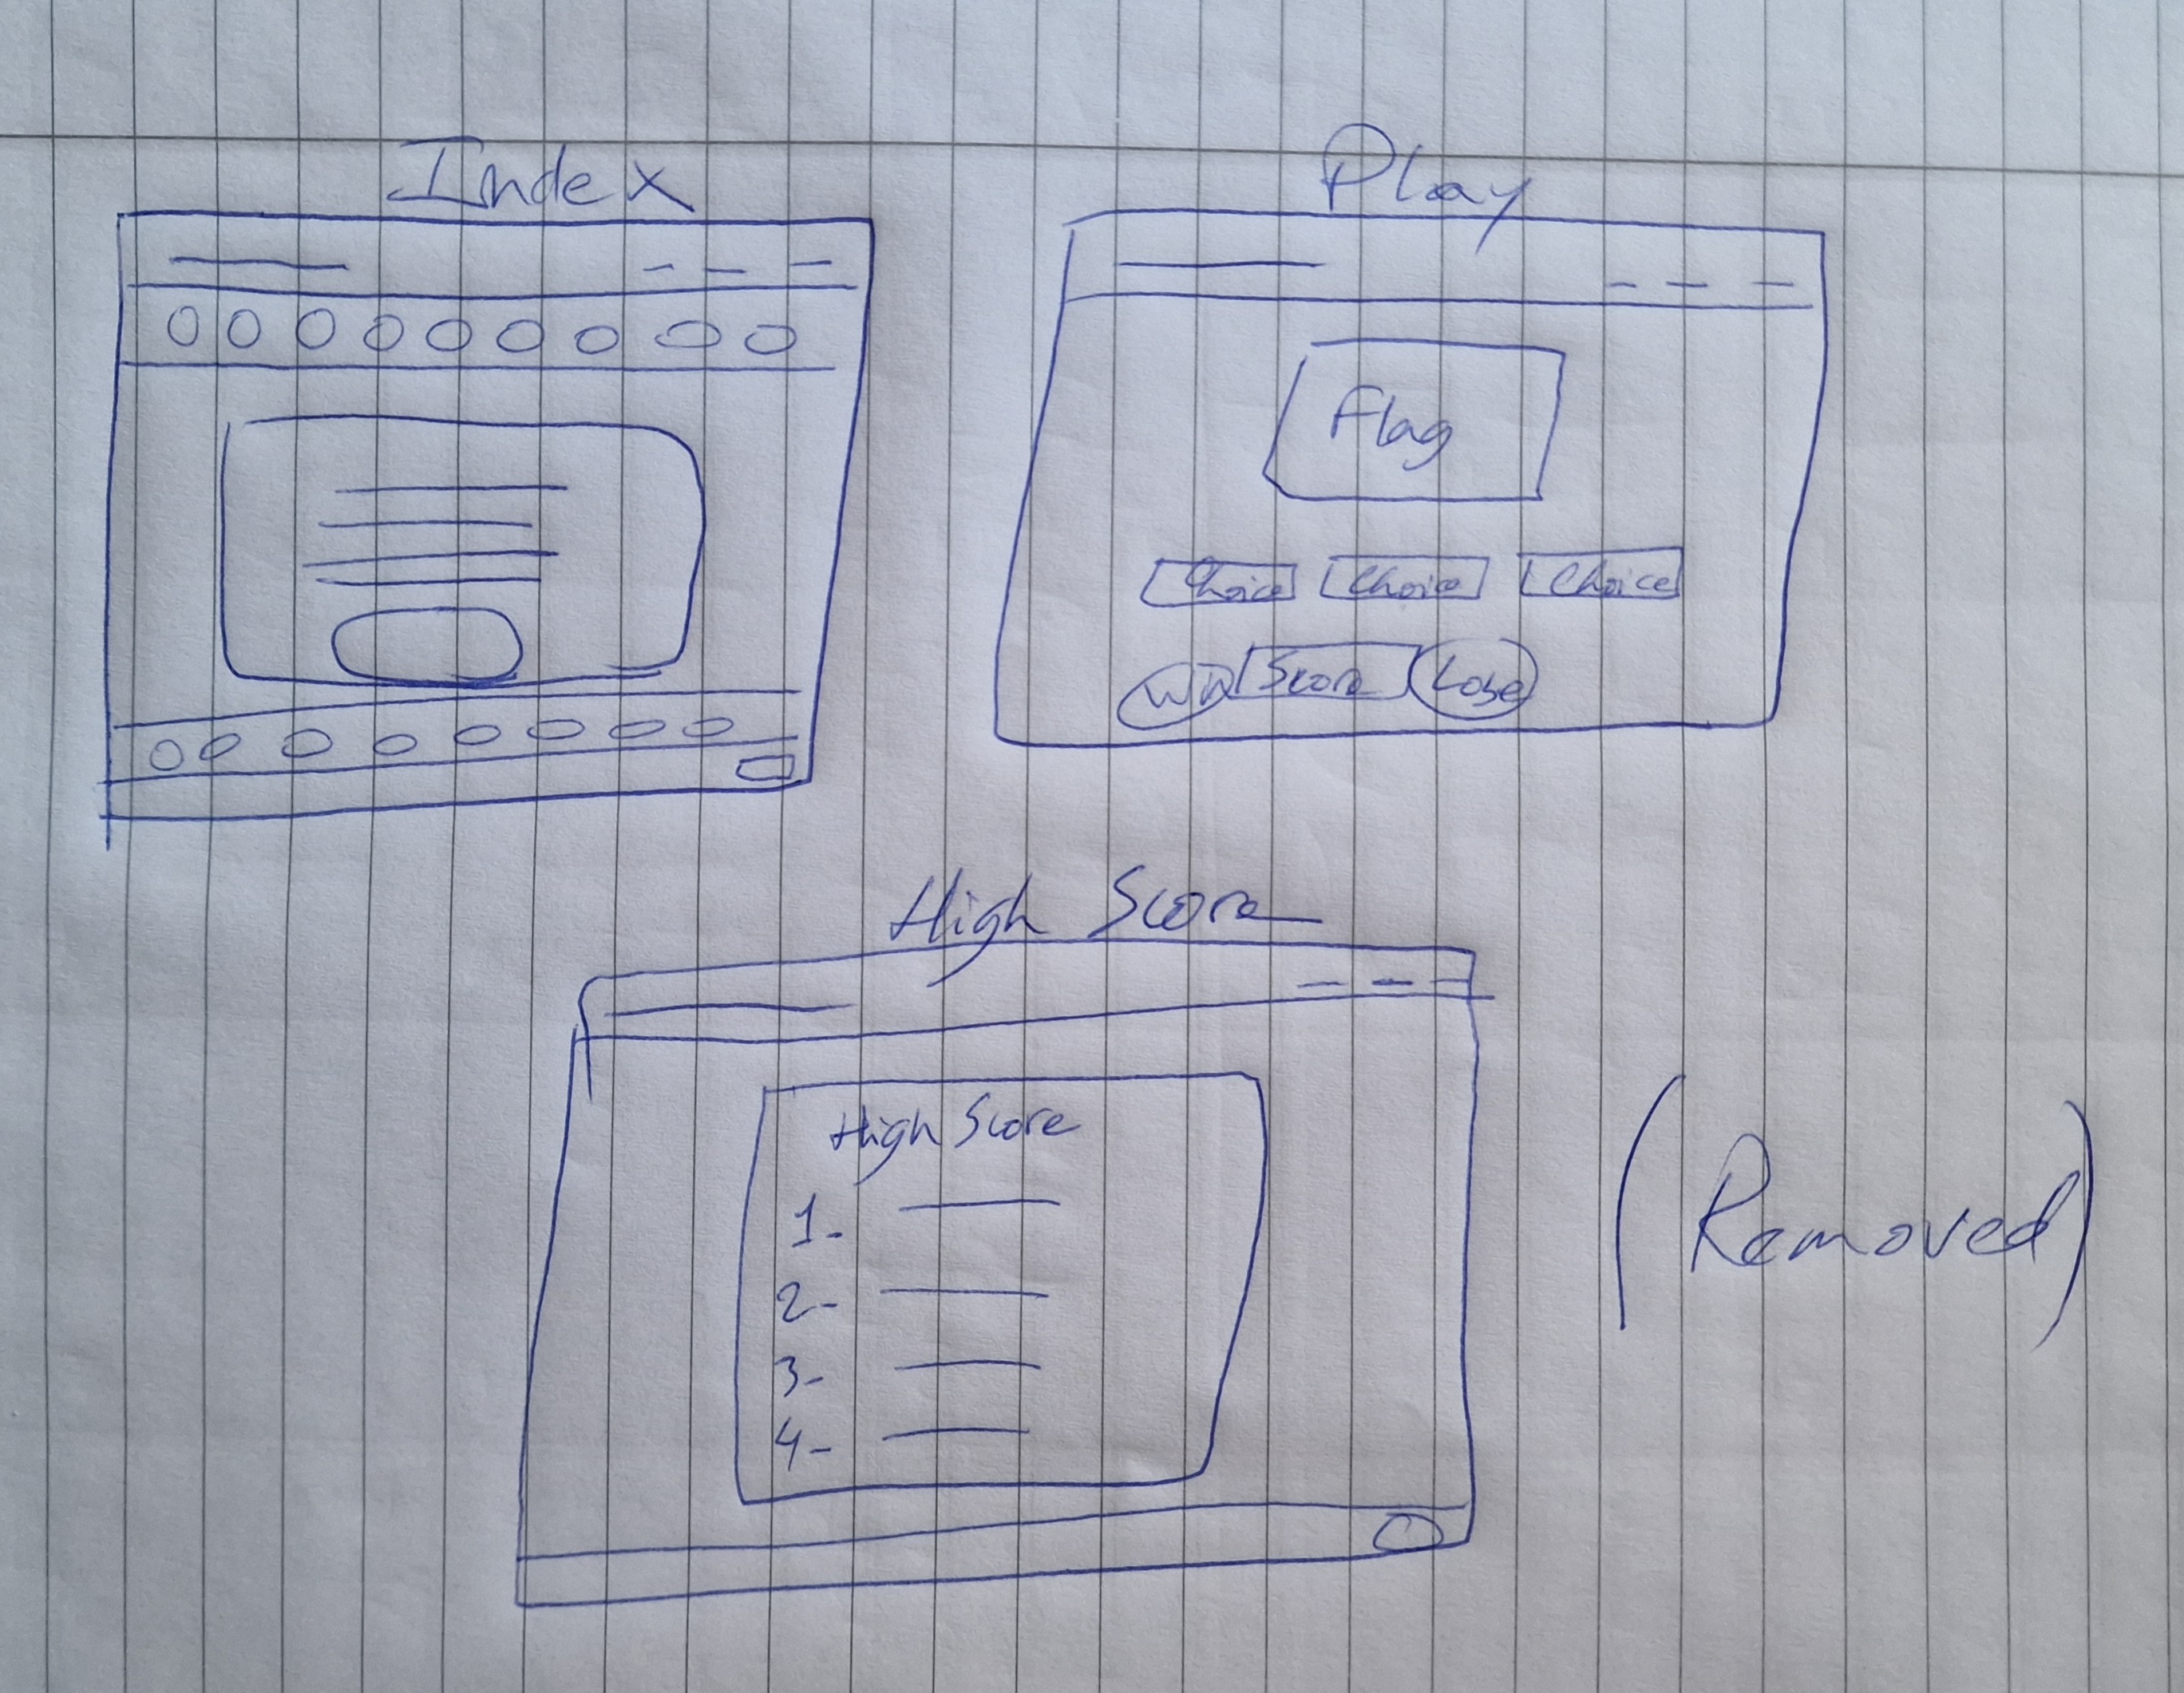 Index
Play
Flag
Choice Choice Choice
Win Score Lose
High Score
High Score
1-
2-
3-
4-
(Removed)